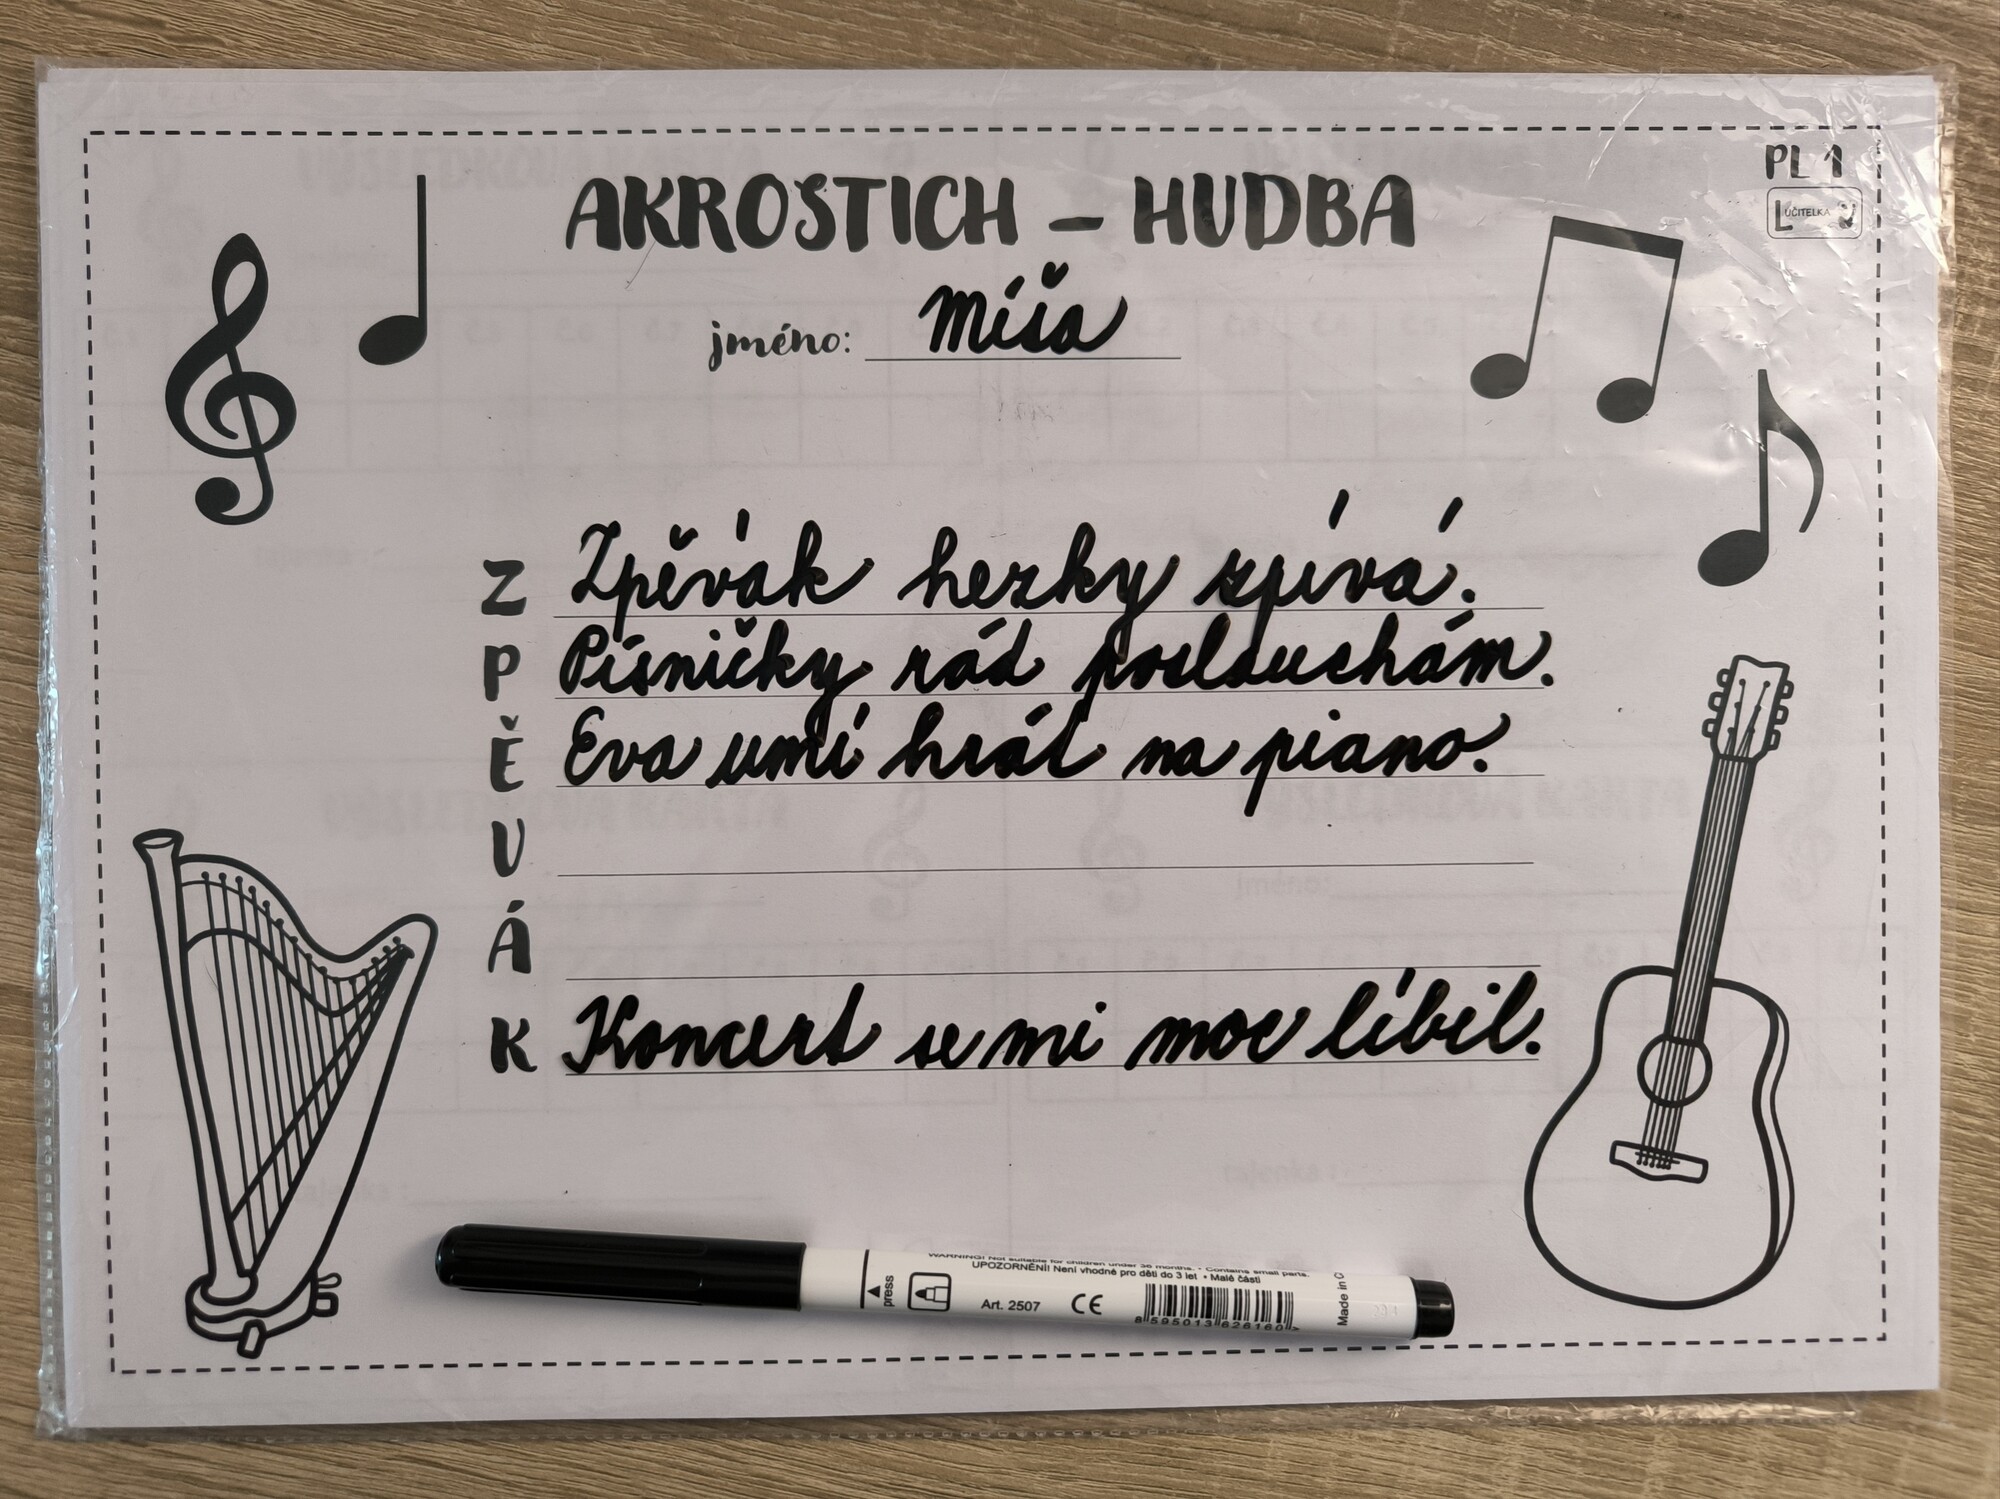 AKROSTICH – HUDBA
PL 1
UČITELKA
jméno: Míša
Z Zpěvák hezky zpívá.
P Písničky rád poslouchám.
Ě Eva umí hrát na piano.
V
Á
K Koncert se mi moc líbil.
WARNING! Not suitable for children under 36 months. • Contains small parts.
UPOZORNĚNÍ! Není vhodné pro děti do 3 let • Malé části
press
Art. 2507
CE
8 595013 626160
Made in